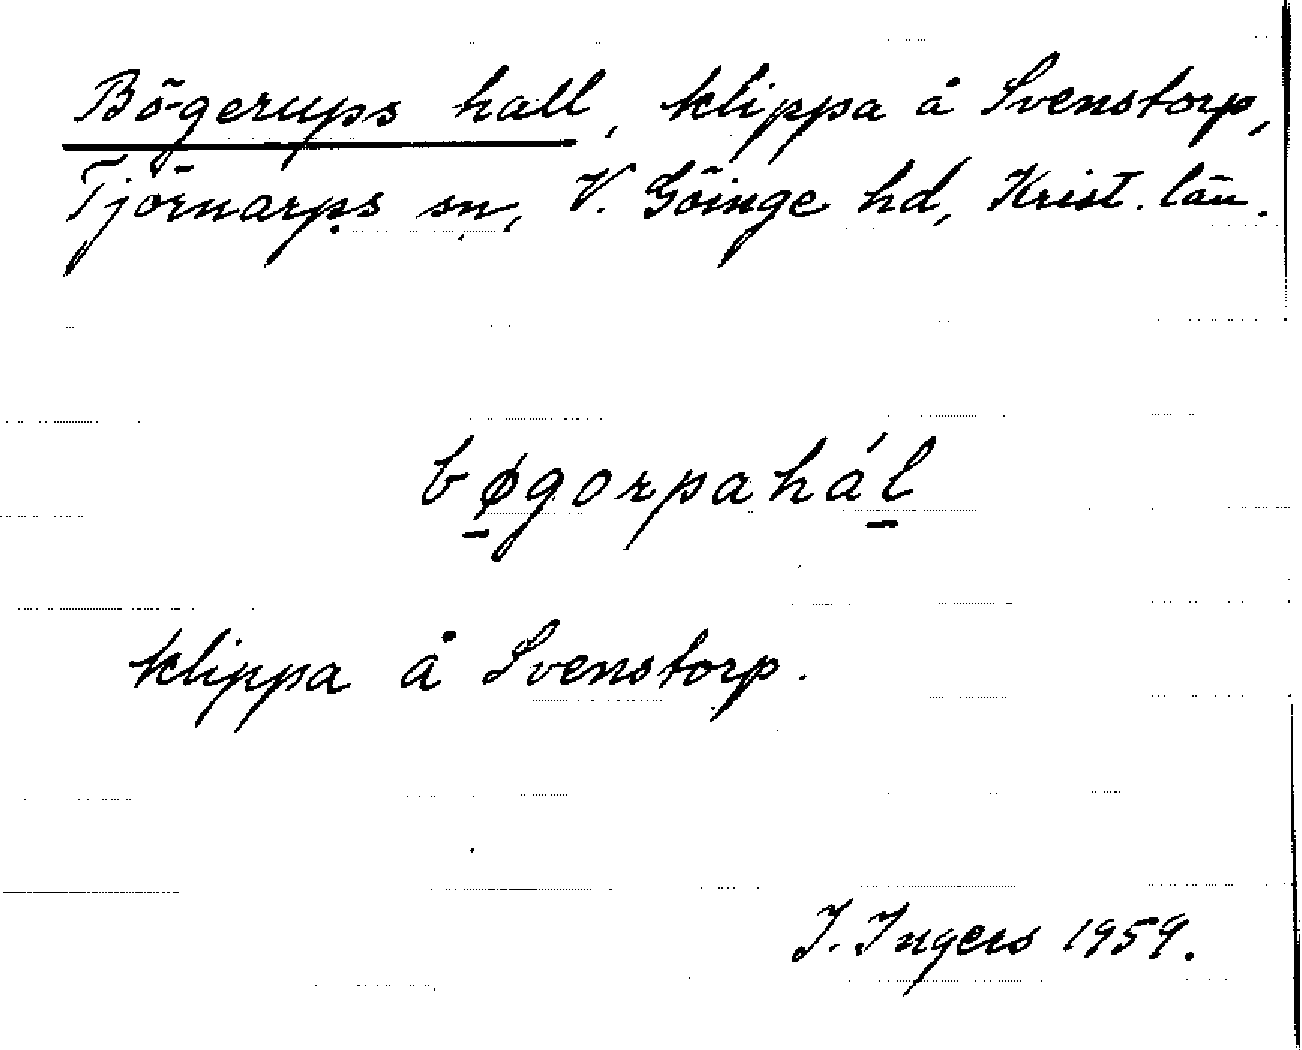 Bögerups hall, klippa å Svenstorp,
Tjörnarps sn, V. Göinge hd, Krist. län.
bø̠gorpahál̠
klippa å Svenstorp.
I. Ingers 1959.